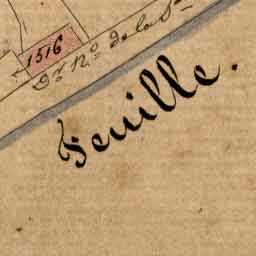 1516
N.º de la S.ᵒⁿ
Feuille.